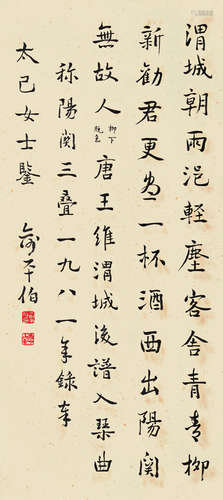 渭城朝雨浥輕塵客舍青青柳
新勸君更尽一杯酒西出陽関
無故人柳下脫色唐王維渭城後譜入琴曲
稱陽関三叠一九八一年錄奉
太己女士鑒
俞平伯